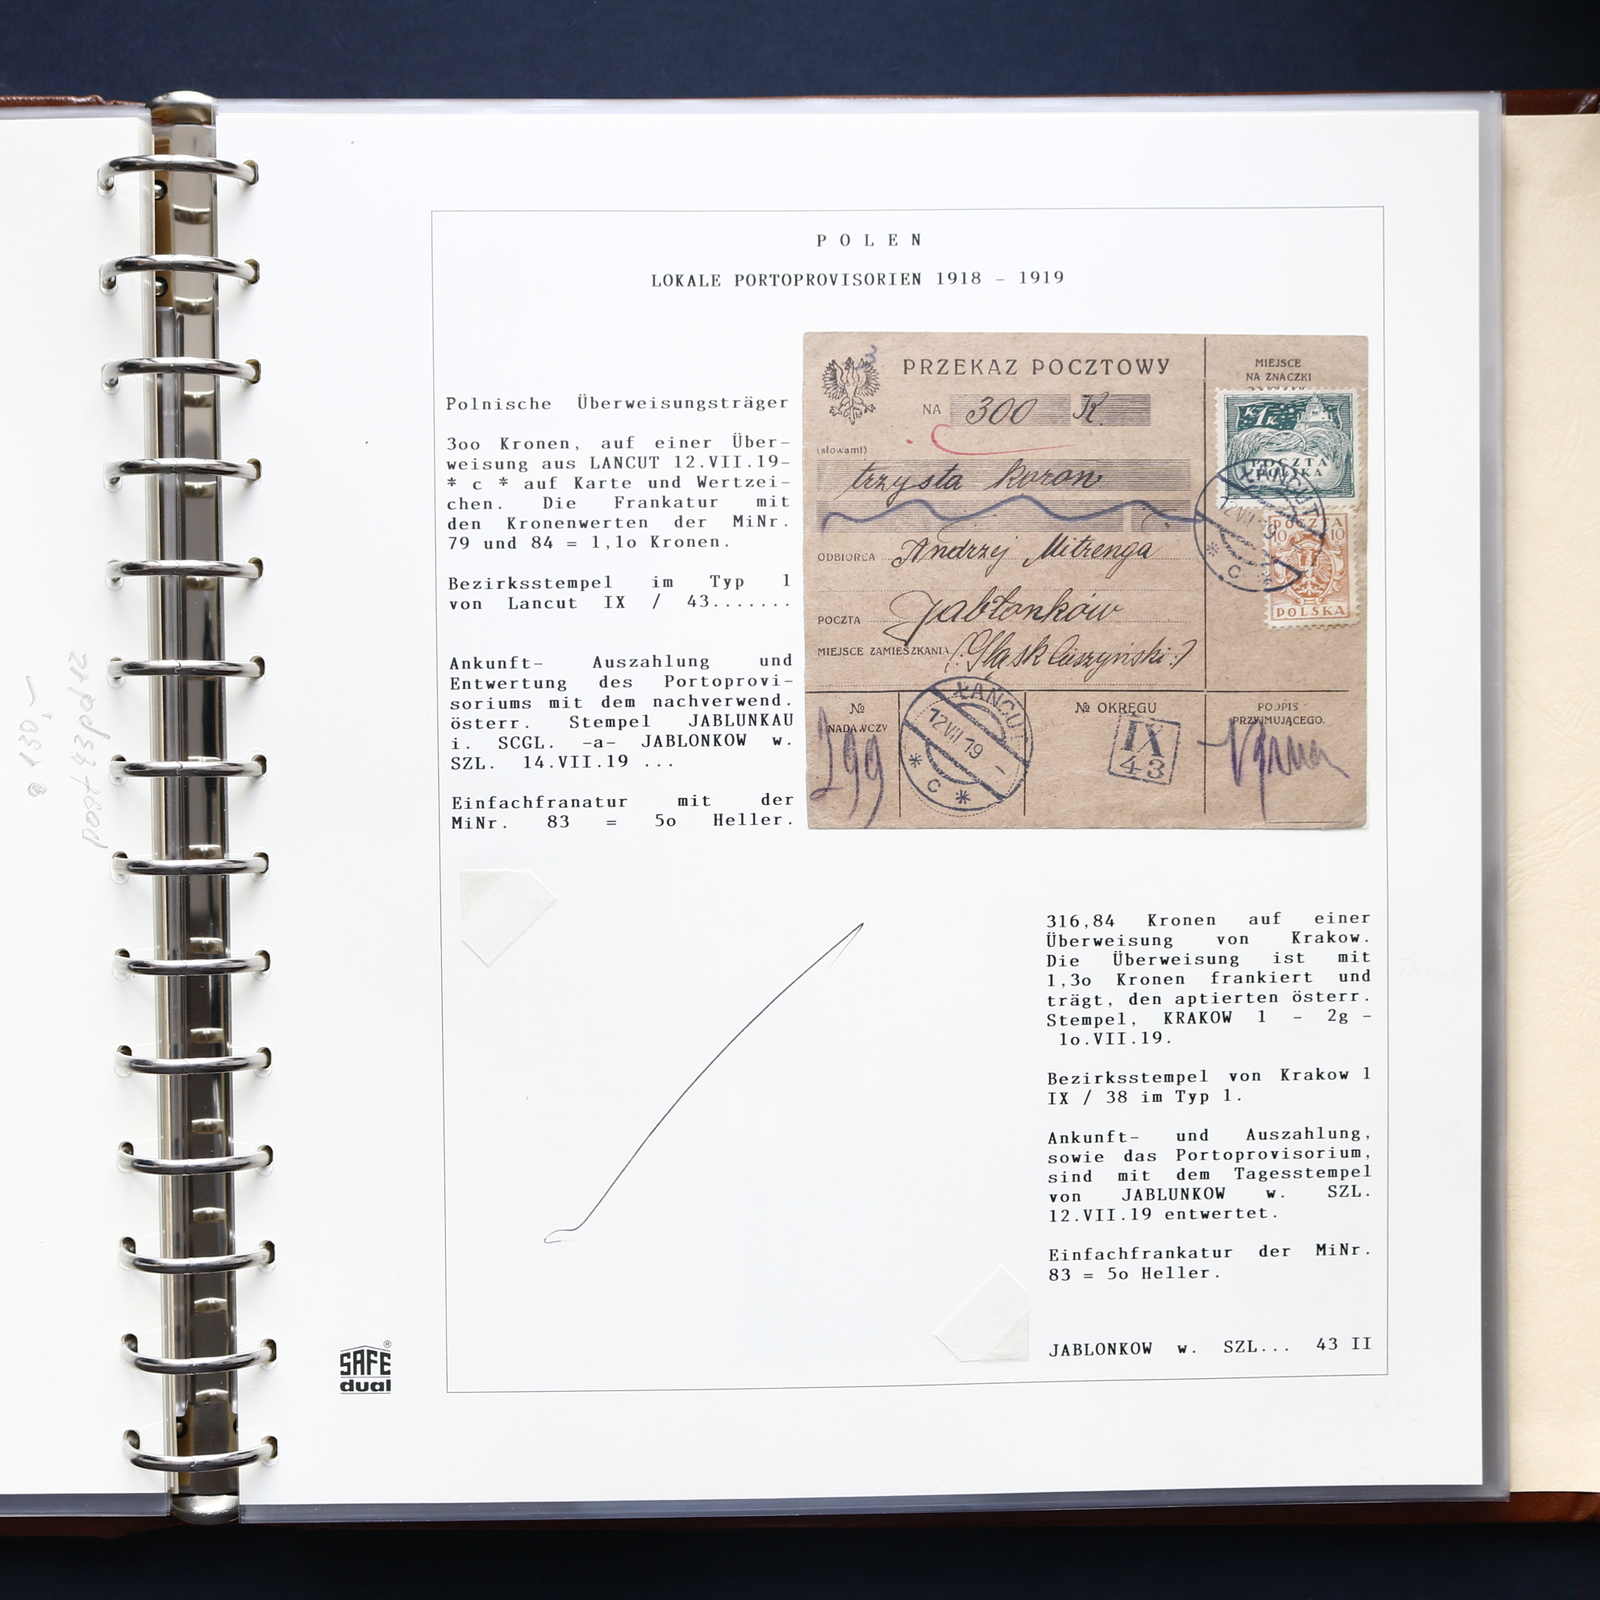 POLEN
LOKALE PORTOPROVISORIEN 1918 - 1919
Polnische Überweisungsträger
3oo Kronen, auf einer Über-
weisung aus LANCUT 12.VII.19-
* c * auf Karte und Wertzei-
chen. Die Frankatur mit
den Kronenwerten der MiNr.
79 und 84 = 1,1o Kronen.
Bezirksstempel im Typ 1
von Lancut IX / 43.......
Ankunft- Auszahlung und
Entwertung des Portoprovi-
soriums mit dem nachverwend.
österr. Stempel JABLUNKAU
i. SCGL. -a- JABLONKOW w.
SZL. 14.VII.19 ...
Einfachfranatur mit der
MiNr. 83 = 5o Heller.
PRZEKAZ POCZTOWY
NA 300 K.
(słowami)
trzysta koron
ODBIORCA Andrzej Mitrenga
POCZTA Jabłonków
MIEJSCE ZAMIESZKANIA (:Śląsk Cieszyński:)
MIEJSCE
NA ZNACZKI
K 1 K
POCZTA
POLSKA
ŁAŃCUT
12 VII 19
* C *
POCZTA
10 10
POLSKA
№
NADAWCZY
299
ŁAŃCUT
12 VII 19
* C *
№ OKRĘGU
IX
43
PODPIS
PRZYJMUJĄCEGO.
316,84 Kronen auf einer
Überweisung von Krakow.
Die Überweisung ist mit
1,3o Kronen frankiert und
trägt, den aptierten österr.
Stempel, KRAKOW 1 - 2g -
1o.VII.19.
Bezirksstempel von Krakow 1
IX / 38 im Typ 1.
Ankunft- und Auszahlung,
sowie das Portoprovisorium,
sind mit dem Tagesstempel
von JABLUNKOW w. SZL.
12.VII.19 entwertet.
Einfachfrankatur der MiNr.
83 = 5o Heller.
JABLONKOW w. SZL... 43 II
SAFE
dual